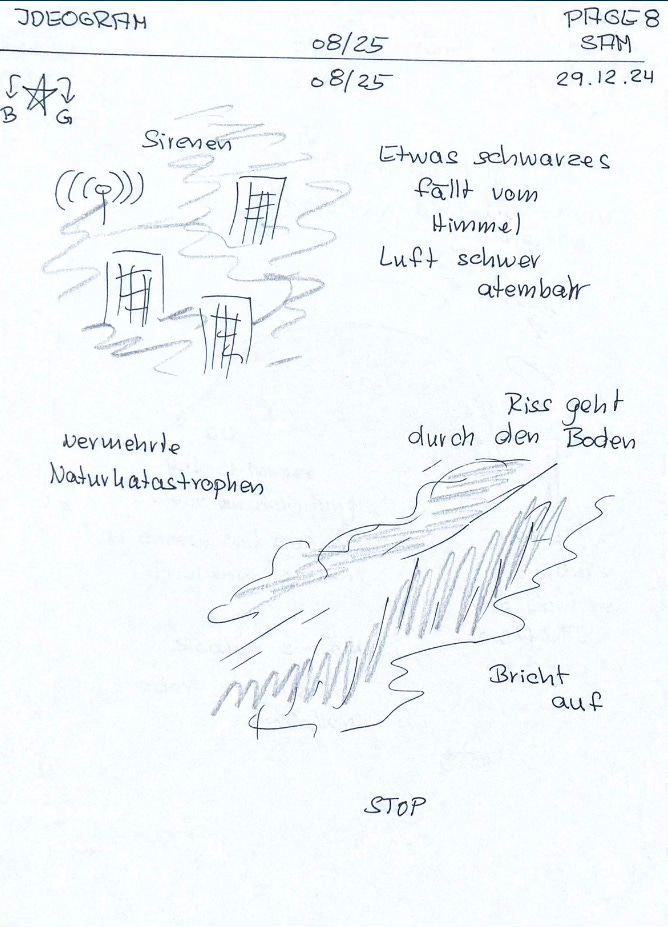 IDEOGRAM
PAGE 8
08/25
SAM
08/25
29.12.24
B G
Sirenen
Etwas schwarzes
fällt vom
Himmel
Luft schwer
atembahr
Riss geht
durch den Boden
vermehrte
Naturkatastrophen
Bricht
auf
STOP